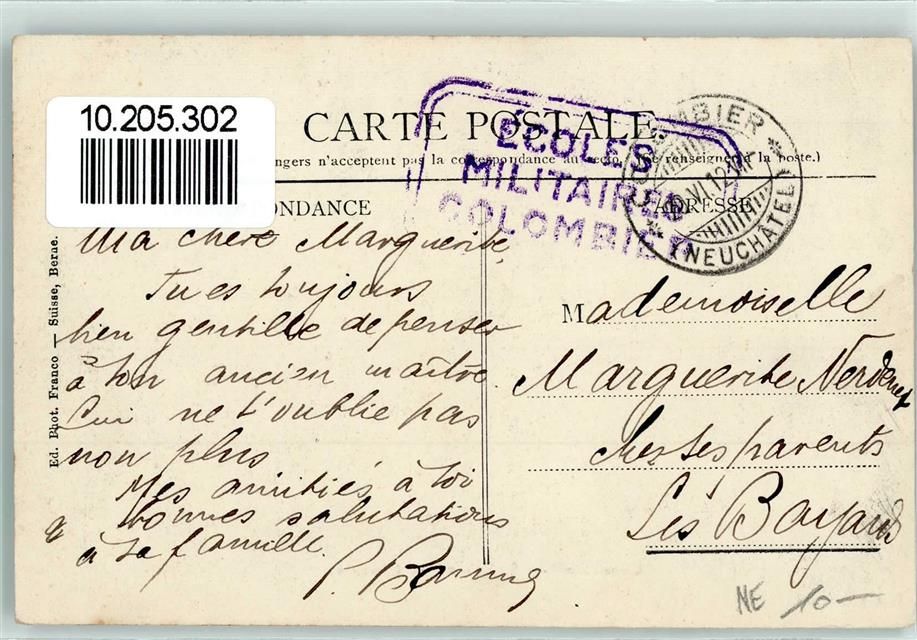 10.205.302
CARTE POSTALE
ÉCOLES
MILITAIRES
COLOMBIER
COLOMBIER
VI.12
(NEUCHÂTEL)
ngers n'acceptent pas la correspondance au recto. (Se renseigner à la poste.)
ONDANCE
ADRESSE
Ma chère Marguerite,
Tu es toujours
bien gentille de penser
à ton ancien maître.
Lui ne t'oublie pas
non plus
Mes amitiés à toi
& bonnes salutations
à ta famille.
P.
Mademoiselle
Marguerite
chez ses parents
Les Bayards
Ed. Phot. Franco — Suisse, Berne.
NE 10—